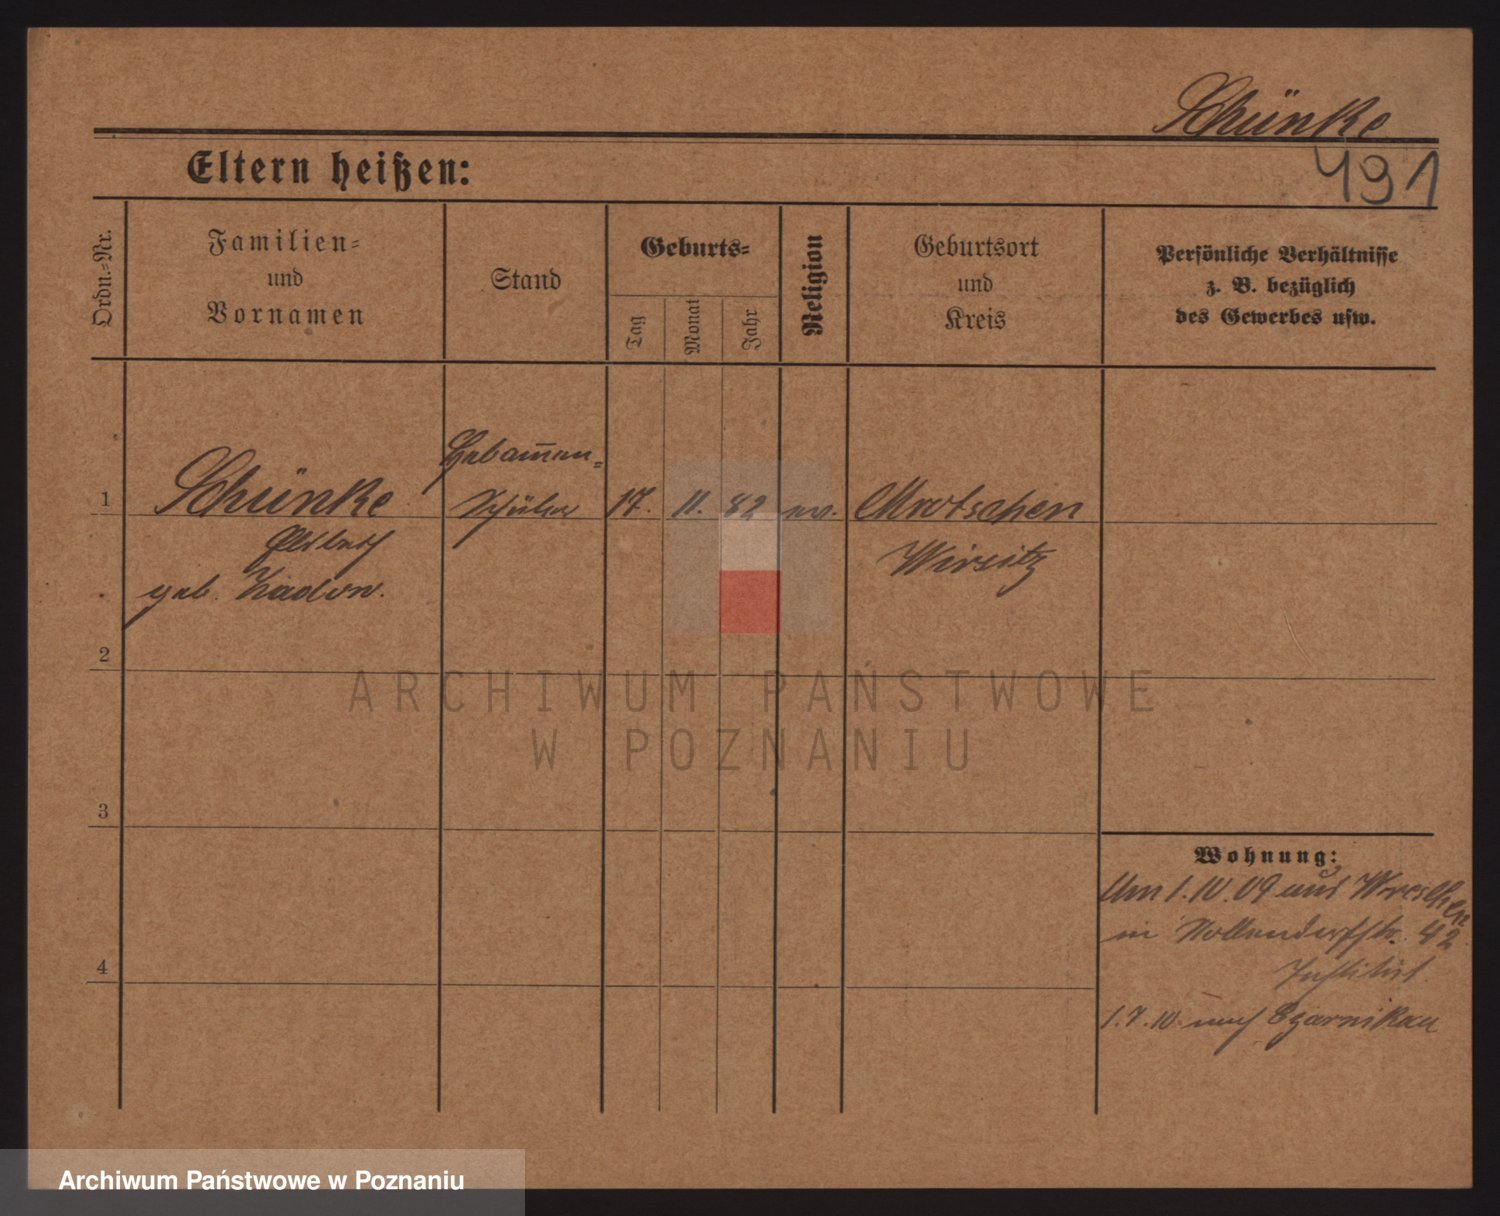 Schünke
491
Eltern heißen:
Ordn.-Nr.
Familien-
und
Vornamen
Stand
Geburts-
Tag
Monat
Jahr
Religion
Geburtsort
und
Kreis
Persönliche Verhältnisse
z. B. bezüglich
des Gewerbes usw.
1
Schünke
geb. Zadow.
Hebam̅en-
Schüler
17.
11.
82
ev.
Mrotschen
Wirsitz
2
3
4
Wohnung:
Am 1.10.09 aus Wreschen
in Nollendorfstr. 42
Institut.
1.7.10 nach Czarnikau
ARCHIWUM PAŃSTWOWE
W POZNANIU
Archiwum Państwowe w Poznaniu